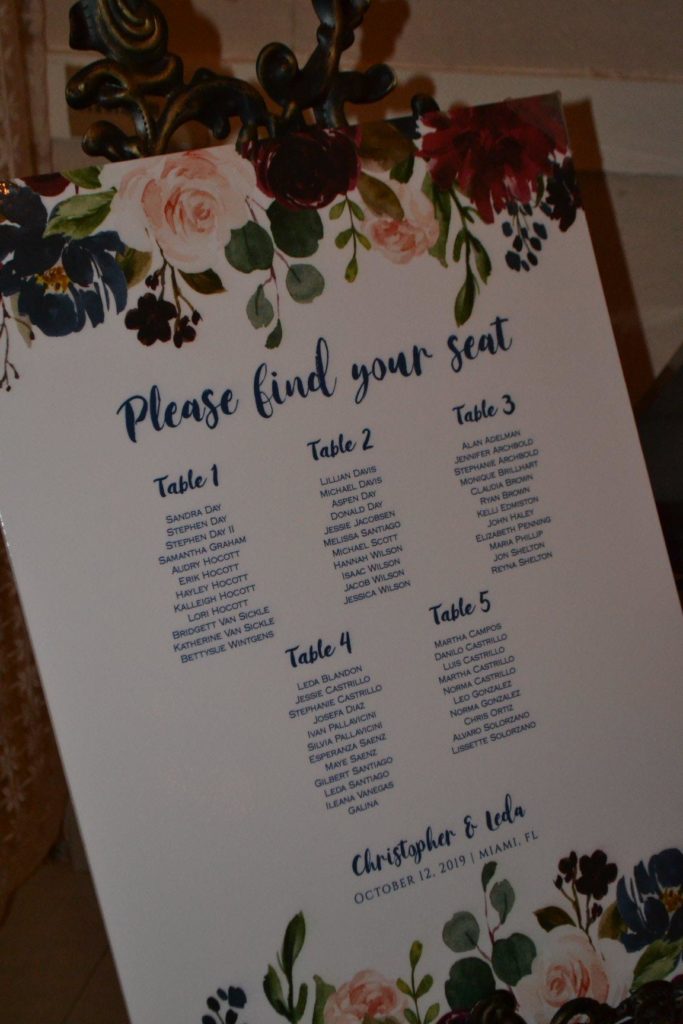 Please find your seat
Table 1
SANDRA DAY
STEPHEN DAY
STEPHEN DAY II
SAMANTHA GRAHAM
AUDRY HOCOTT
ERIK HOCOTT
HAYLEY HOCOTT
KALLEIGH HOCOTT
LORI HOCOTT
BRIDGETT VAN SICKLE
KATHERINE VAN SICKLE
BETTYSUE WINTGENS
Table 2
LILLIAN DAVIS
MICHAEL DAVIS
ASPEN DAY
DONALD DAY
JESSIE JACOBSEN
MELISSA SANTIAGO
MICHAEL SCOTT
HANNAH WILSON
ISAAC WILSON
JACOB WILSON
JESSICA WILSON
Table 3
ALAN ADELMAN
JENNIFER ARCHBOLD
STEPHANIE ARCHBOLD
MONIQUE BRILLHART
CLAUDIA BROWN
RYAN BROWN
KELLI EDMISTON
JOHN HALEY
ELIZABETH PENNING
MARIA PHILLIP
JON SHELTON
REYNA SHELTON
Table 4
LEDA BLANDON
JESSIE CASTRILLO
STEPHANIE CASTRILLO
JOSEFA DIAZ
IVAN PALLAVICINI
SILVIA PALLAVICINI
ESPERANZA SAENZ
MAYE SAENZ
GILBERT SANTIAGO
LEDA SANTIAGO
ILEANA VANEGAS
GALINA
Table 5
MARTHA CAMPOS
DANILO CASTRILLO
LUIS CASTRILLO
MARTHA CASTRILLO
NORMA CASTRILLO
LEO GONZALEZ
NORMA GONZALEZ
CHRIS ORTIZ
ALVARO SOLORZANO
LISSETTE SOLORZANO
Christopher & Leda
OCTOBER 12, 2019 | MIAMI, FL